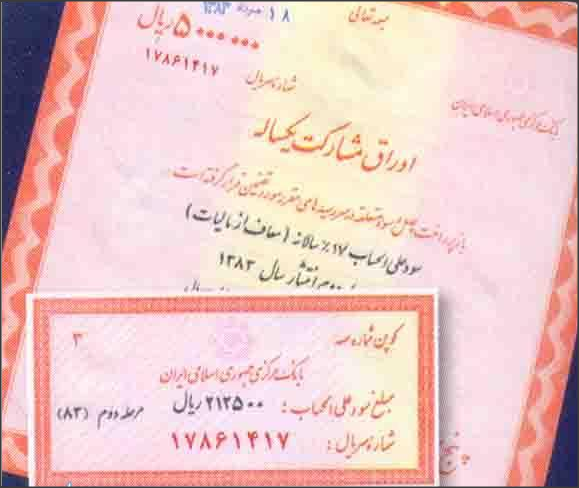 بسمه تعالی
۱۸ مرداد ۱۳۸۳
۵۰۰۰۰۰۰ ریال
۱۷۸۶۱۴۱۷
شماره سریال
بانک مرکزی جمهوری اسلامی ایران
اوراق مشارکت یکساله
بازپرداخت اصل و سود متعلقه در سررسیدهای مقرر مورد تضمین قرار گرفته است.
سود علی الحساب ۱۷٪ سالانه (معاف از مالیات)
انتشار سال ۱۳۸۳
کوپن شماره سه
۳
بانک مرکزی جمهوری اسلامی ایران
مبلغ سود علی الحساب: ۲۱۲۵۰۰ ریال
مرحله دوم (۸۳)
شماره سریال: ۱۷۸۶۱۴۱۷
پنج